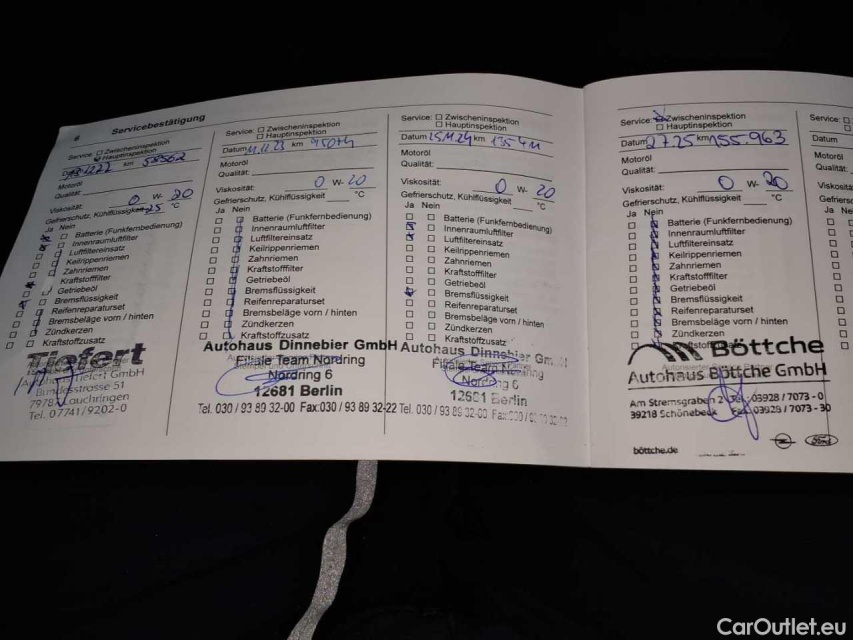 Servicebestätigung
Service: Zwischeninspektion
Hauptinspektion
Datum km 58562
Motoröl
Qualität:
Viskosität: 0 W- 20
Gefrierschutz, Kühlflüssigkeit -25 °C
Ja Nein
Batterie (Funkfernbedienung)
Innenraumluftfilter
Luftfiltereinsatz
Keilrippenriemen
Zahnriemen
Kraftstofffilter
Getriebeöl
Bremsflüssigkeit
Reifenreparaturset
Bremsbeläge vorn / hinten
Zündkerzen
Kraftstoffzusatz
Tiefert
Autohaus Tiefert GmbH
Bundesstrasse 51
Lauchringen
Tel. 07741/9202-0
Service: Zwischeninspektion
Hauptinspektion
Datum km
Motoröl
Qualität:
Viskosität: 0 W- 20
Gefrierschutz, Kühlflüssigkeit °C
Ja Nein
Batterie (Funkfernbedienung)
Innenraumluftfilter
Luftfiltereinsatz
Keilrippenriemen
Zahnriemen
Kraftstofffilter
Getriebeöl
Bremsflüssigkeit
Reifenreparaturset
Bremsbeläge vorn / hinten
Zündkerzen
Kraftstoffzusatz
Autohaus Dinnebier GmbH
Filiale Team Nordring
Nordring 6
12681 Berlin
Tel. 030 / 93 89 32-00 Fax:030 / 93 89 32-22
Service: Zwischeninspektion
Hauptinspektion
Datum 15.11.24 km
Motoröl
Qualität:
Viskosität: 0 W- 20
Gefrierschutz, Kühlflüssigkeit °C
Ja Nein
Batterie (Funkfernbedienung)
Innenraumluftfilter
Luftfiltereinsatz
Keilrippenriemen
Zahnriemen
Kraftstofffilter
Getriebeöl
Bremsflüssigkeit
Reifenreparaturset
Bremsbeläge vorn / hinten
Zündkerzen
Kraftstoffzusatz
Autohaus Dinnebier GmbH
Filiale Team Nordring
Nordring 6
12681 Berlin
Tel. 030 / 93 89 32-00
Service: Zwischeninspektion
Hauptinspektion
Datum 2.7.25 km 155.963
Motoröl
Qualität:
Viskosität: 0 W- 20
Gefrierschutz, Kühlflüssigkeit °C
Ja Nein
Batterie (Funkfernbedienung)
Innenraumluftfilter
Luftfiltereinsatz
Keilrippenriemen
Zahnriemen
Kraftstofffilter
Getriebeöl
Bremsflüssigkeit
Reifenreparaturset
Bremsbeläge vorn / hinten
Zündkerzen
Kraftstoffzusatz
Böttche
Autohaus Böttche GmbH
Am Stremsgraben 2 Tel.: 03928 / 7073 - 0
39218 Schönebeck Fax: 03928 / 7073 - 30
böttche.de
Ford
Service:
Datum
Motoröl
Qualität:
Ja
CarOutlet.eu